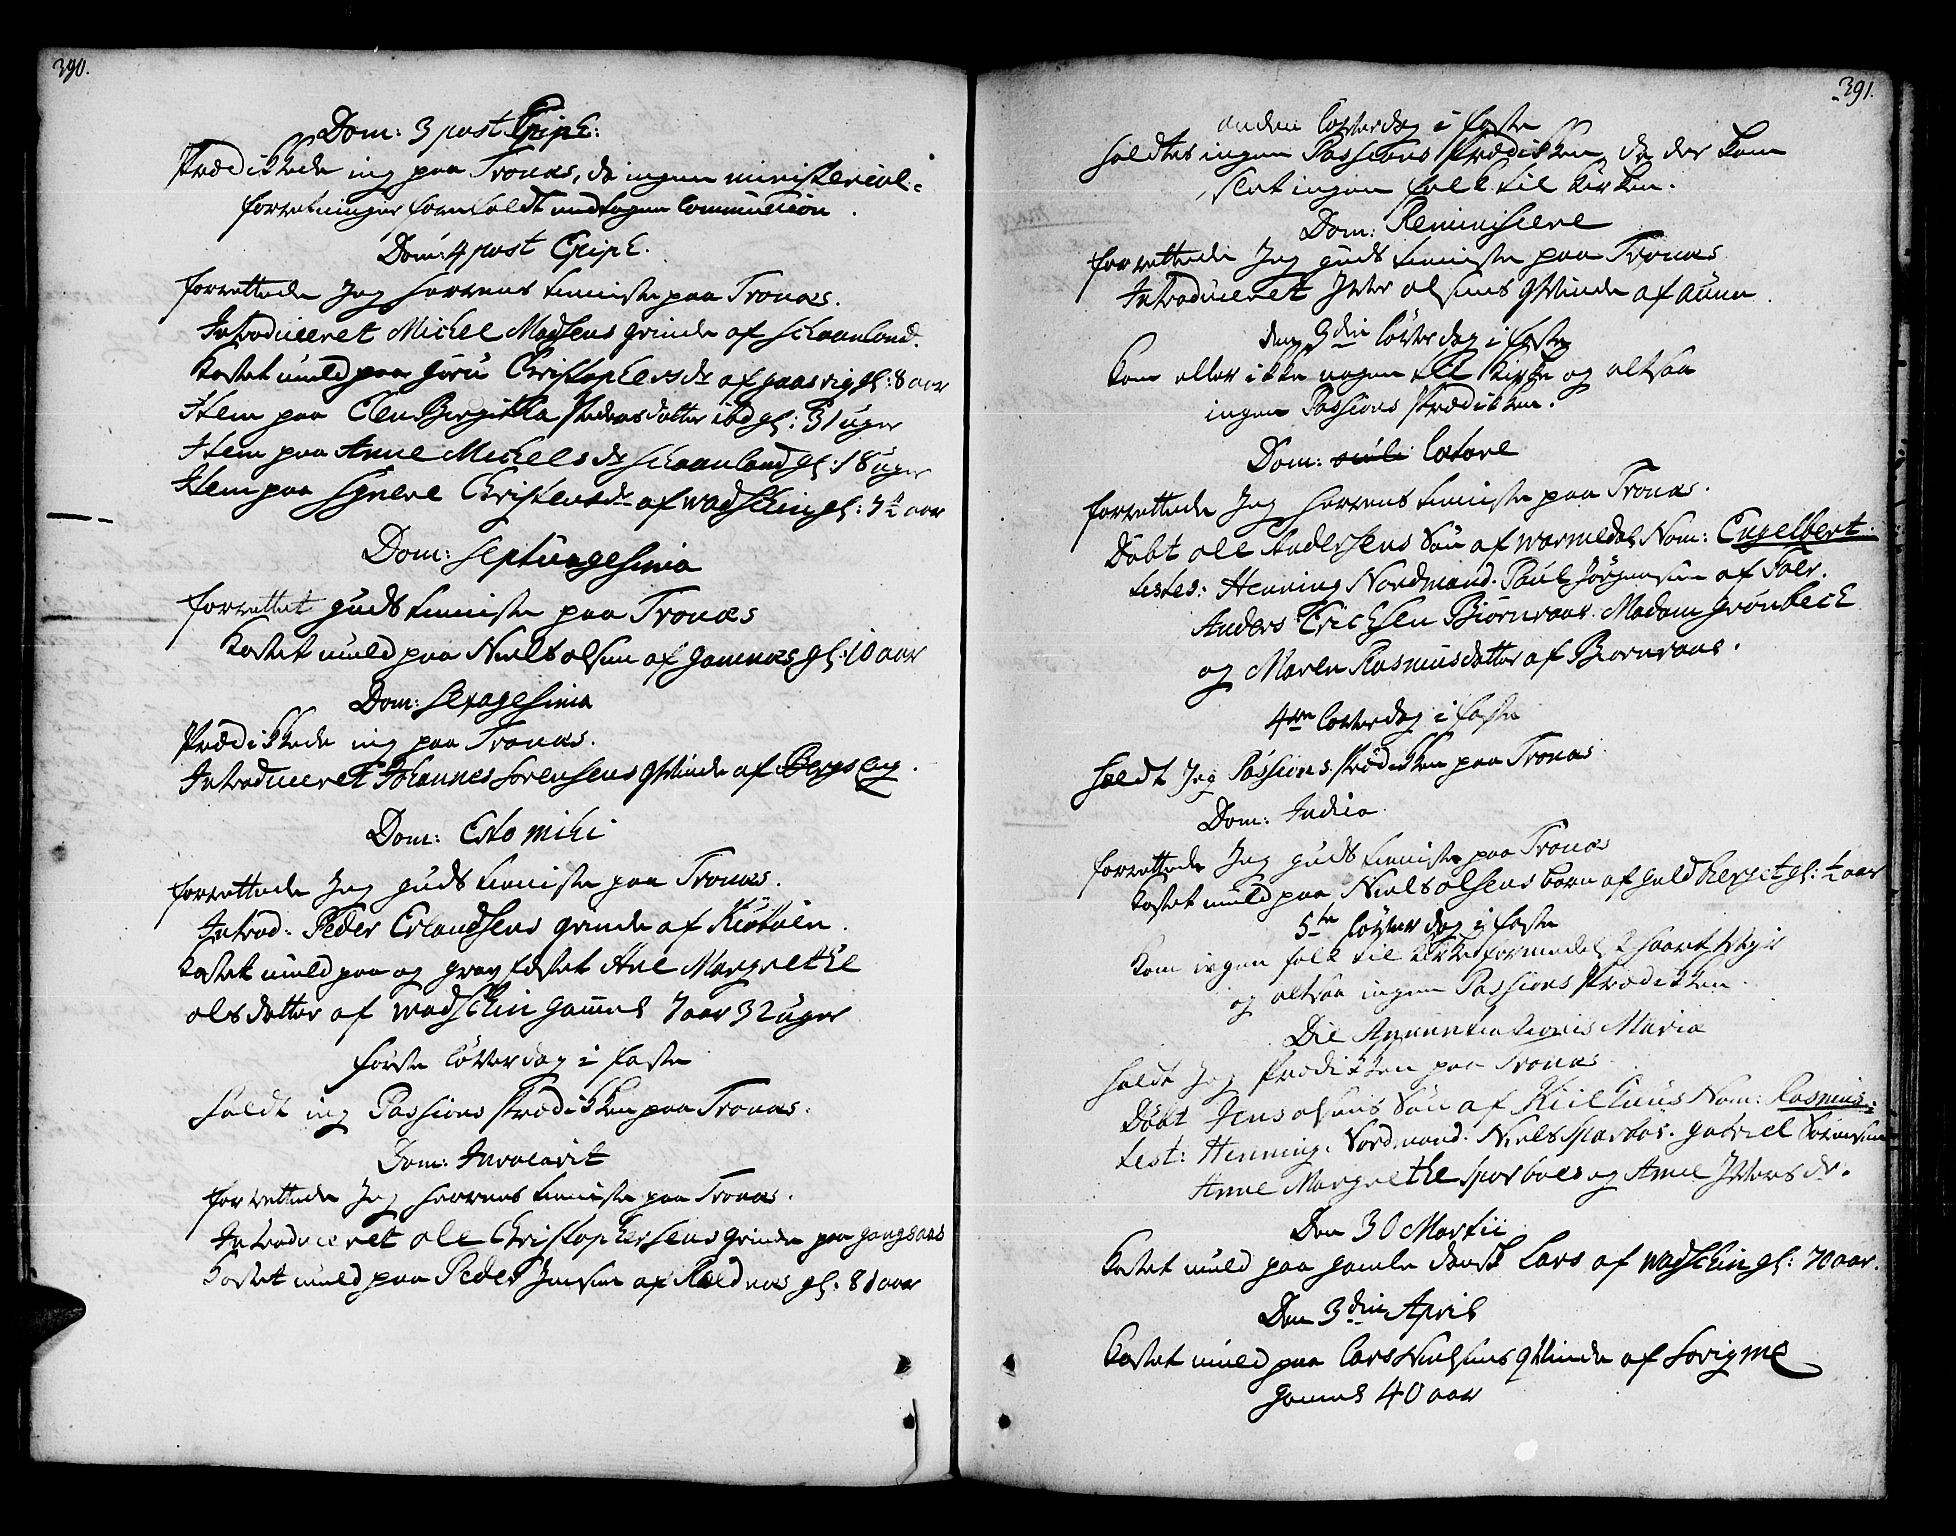 390.
Dom: 3 post Epiph:
Prædikkede ieg paa Tronæs, da ingen ministerial-
forretninger forefaldt undtagen Communion.
Dom: 4 post Epiph.
forrettede Jeg Herrens tieniste paa Tronæs.
Introduceret Michel Madsens qvinde af schaanland.
Kastet muld paa Christophersdr af gaasvig gl: 8 aar
Item paa Elen Birgitha Pedersdatter ibd gl: 31 uger
Item paa Anne Michelsdr schaanland gl: 18 uger
Item paa Christensdr af wadschin gl: 7½ aar
Dom: septuagesima
forrettet guds tieniste paa Tronæs
Kastet muld paa Niels olsen af gamnæs gl: 10 aar
Dom: sexagesima
Prædikkede ieg paa Tronæs.
Introduceret Johannes Sørensens qvinde af Bergseng.
Dom: Esto mihi
forrettede Jeg guds tieniste paa Tronæs.
Introd: Peder Erlandsens qvinde af Kiøtøen.
Kastet muld paa og grav fæstet Ane Margrethe
olsdatter af wadschin gammel 7 aar 32 uger
første løverdag i faste
Holdt ieg Passions Prædikken paa Tronæs.
Dom: Invocavit
forrettede Jeg Herrens tieniste paa Tronæs.
Introduceret ole Christophersens qvinde paa gangsaas
Kastet muld paa Peder Jensen af Rødnæs gl: 81 aar
391.
anden løverdag i faste
Holdtes ingen Passions Prædikken, da der kom
slet ingen folk til kirken.
Dom: Reminiscere
forrettede Jeg guds tieniste paa Tronæs
Introduceret Iver olsens qvinde af aune.
den 3die løverdag i faste
kom eller ikke nogen til kirke og altsaa
ingen Passions Prædikken.
Dom: Lætare
forrettede Jeg Herrens tieniste paa Tronæs.
Døbt ole Andersens Søn af warmedal Nom: Engelbert.
testes: Henning Nordmand. Paul Jørgensen af Falr.
Anders Erichsen Biørnraae. Madam Grønbech
og Maren Rasmusdatter af Biornraae.
4de løverdag i faste
Holdt Jeg Passions Prædikken paa Tronæs
Dom: Judica
forrettede Jeg guds tieniste paa Tronæs
Kastet muld paa Niels olsens barn af guldberget gl: ½ aar
5te løverdag i faste
kom ingen folk til kirke formedelst haart
og altsaa ingen Passions Prædikken.
Die Annuntiationis Mariæ
Holdt Jeg Prædikken paa Tronæs.
Døbt Jens olsens Søn af Kiilhuus Nom: Rasmus.
test: Henning Nordmand. Niels Sparboe. Gabriel Sørensen
Anne Margrethe Sparboes og Anne Iversdr.
Den 30 Martii
Kastet muld paa gamle dansk Lars af wadschin gl: 70 aar.
Den 3die April
Kastet muld paa Lars Nielsens qvinde af Sørigme
gammel 40 aar